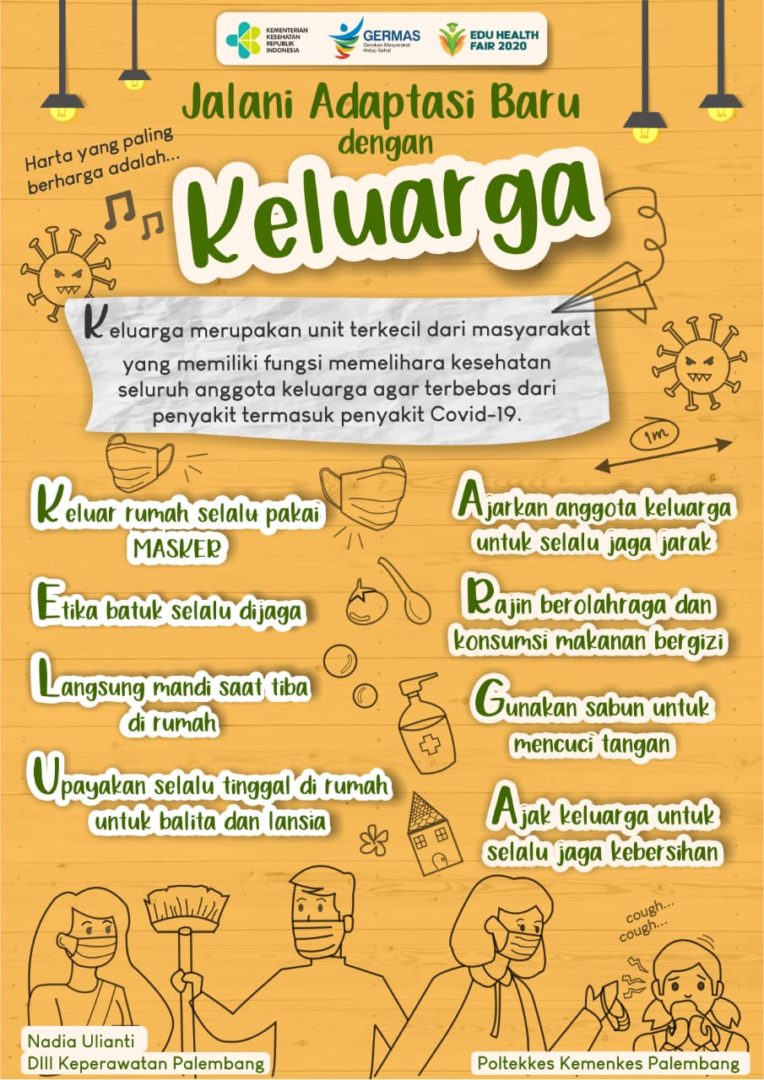 KEMENTERIAN
KESEHATAN
REPUBLIK
INDONESIA
GERMAS
Gerakan Masyarakat
Hidup Sehat
EDU HEALTH
FAIR 2020
Jalani Adaptasi Baru
dengan
Keluarga
Harta yang paling
berharga adalah...
Keluarga merupakan unit terkecil dari masyarakat
yang memiliki fungsi memelihara kesehatan
seluruh anggota keluarga agar terbebas dari
penyakit termasuk penyakit Covid-19.
1m
Keluar rumah selalu pakai
MASKER
Etika batuk selalu dijaga
Langsung mandi saat tiba
di rumah
Upayakan selalu tinggal di rumah
untuk balita dan lansia
Ajarkan anggota keluarga
untuk selalu jaga jarak
Rajin berolahraga dan
konsumsi makanan bergizi
Gunakan sabun untuk
mencuci tangan
Ajak keluarga untuk
selalu jaga kebersihan
cough...
cough...
Nadia Ulianti
DIII Keperawatan Palembang
Poltekkes Kemenkes Palembang